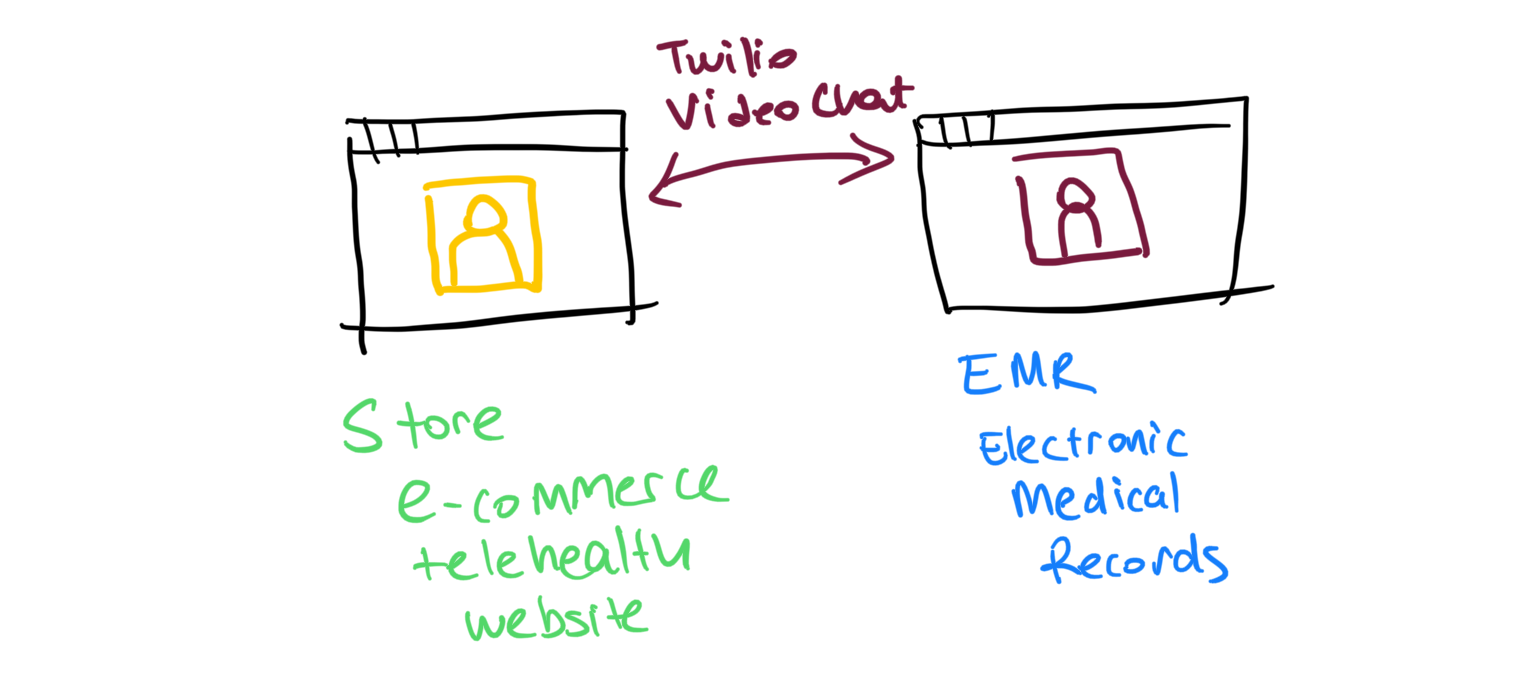 Twilio
Video Chat
Store
e-commerce
telehealth
website
EMR
Electronic
Medical
Records